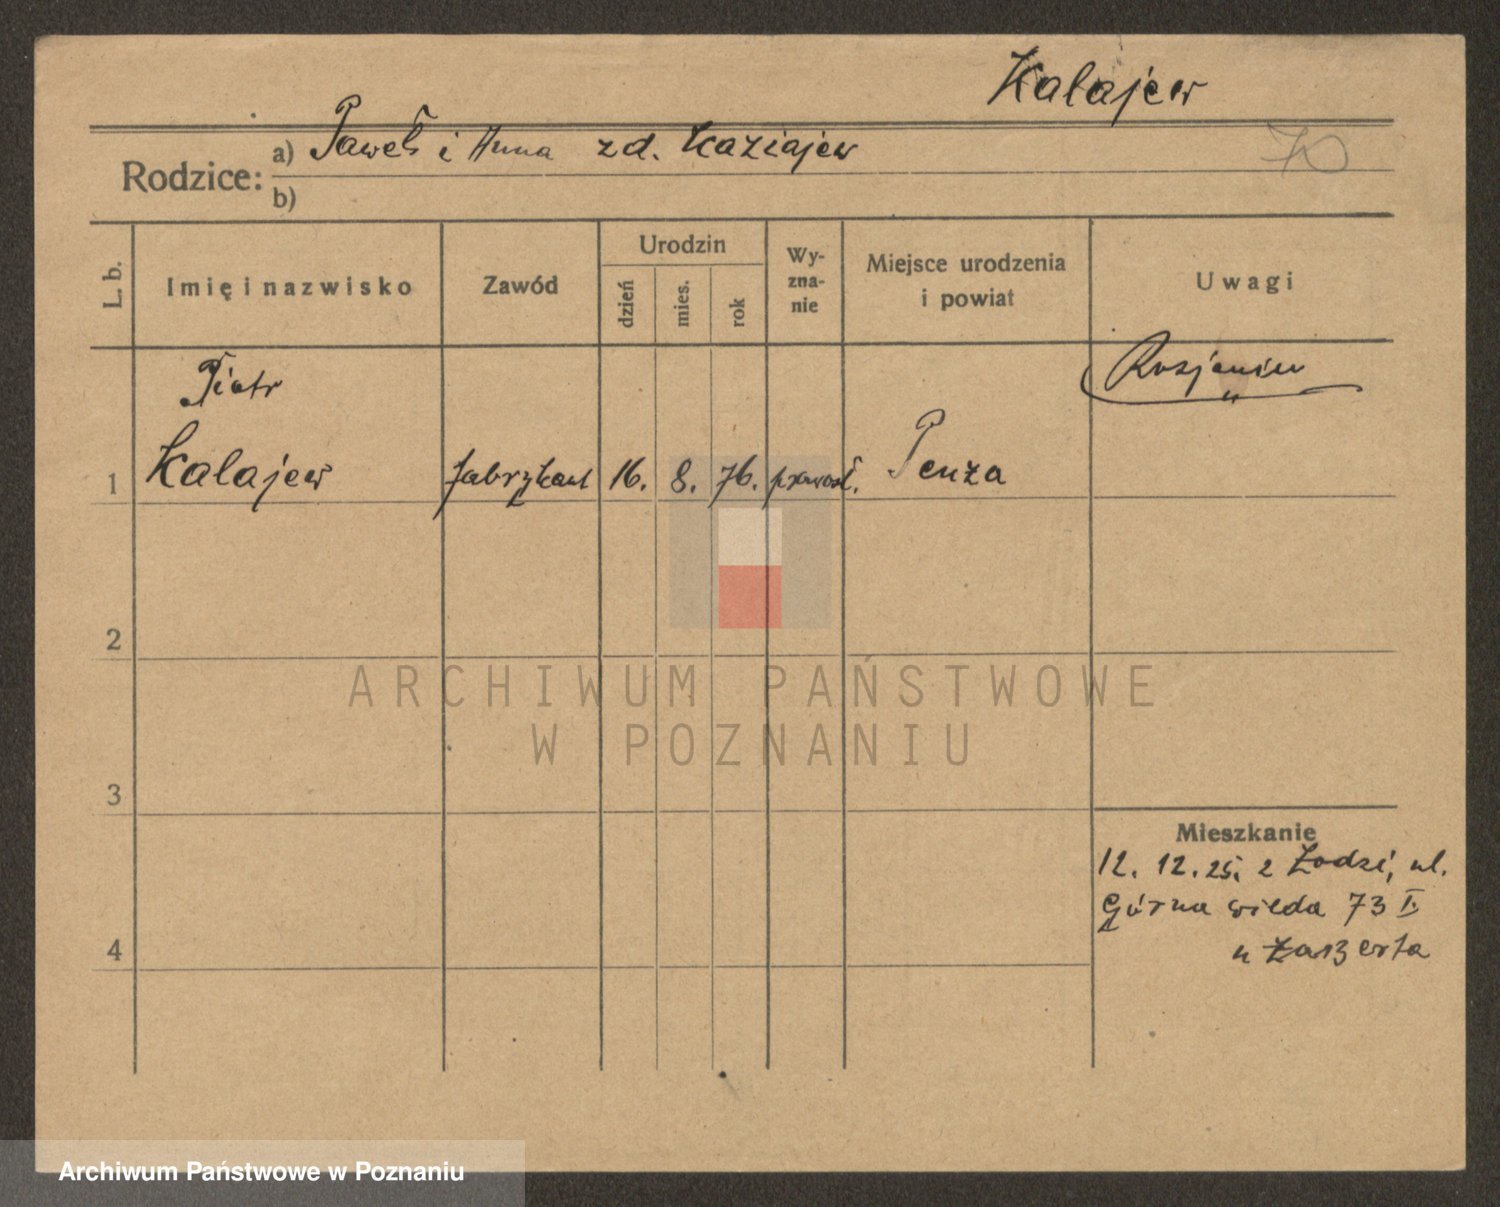 Kalajew
Rodzice: a) Paweł i Anna zd. Kaziajew
70
b)
L. b. Imię i nazwisko Zawód Urodzin dzień mies. rok Wyznanie Miejsce urodzenia i powiat Uwagi
Rosjanin
Piotr
1 Kalajew fabrykant 16. 8. 76. prawosł. Penza
2
ARCHIWUM PAŃSTWOWE
W POZNANIU
3
Mieszkanie
12. 12. 25. z Łodzi, ul.
Górna wilda 73 I.
4
u
Archiwum Państwowe w Poznaniu